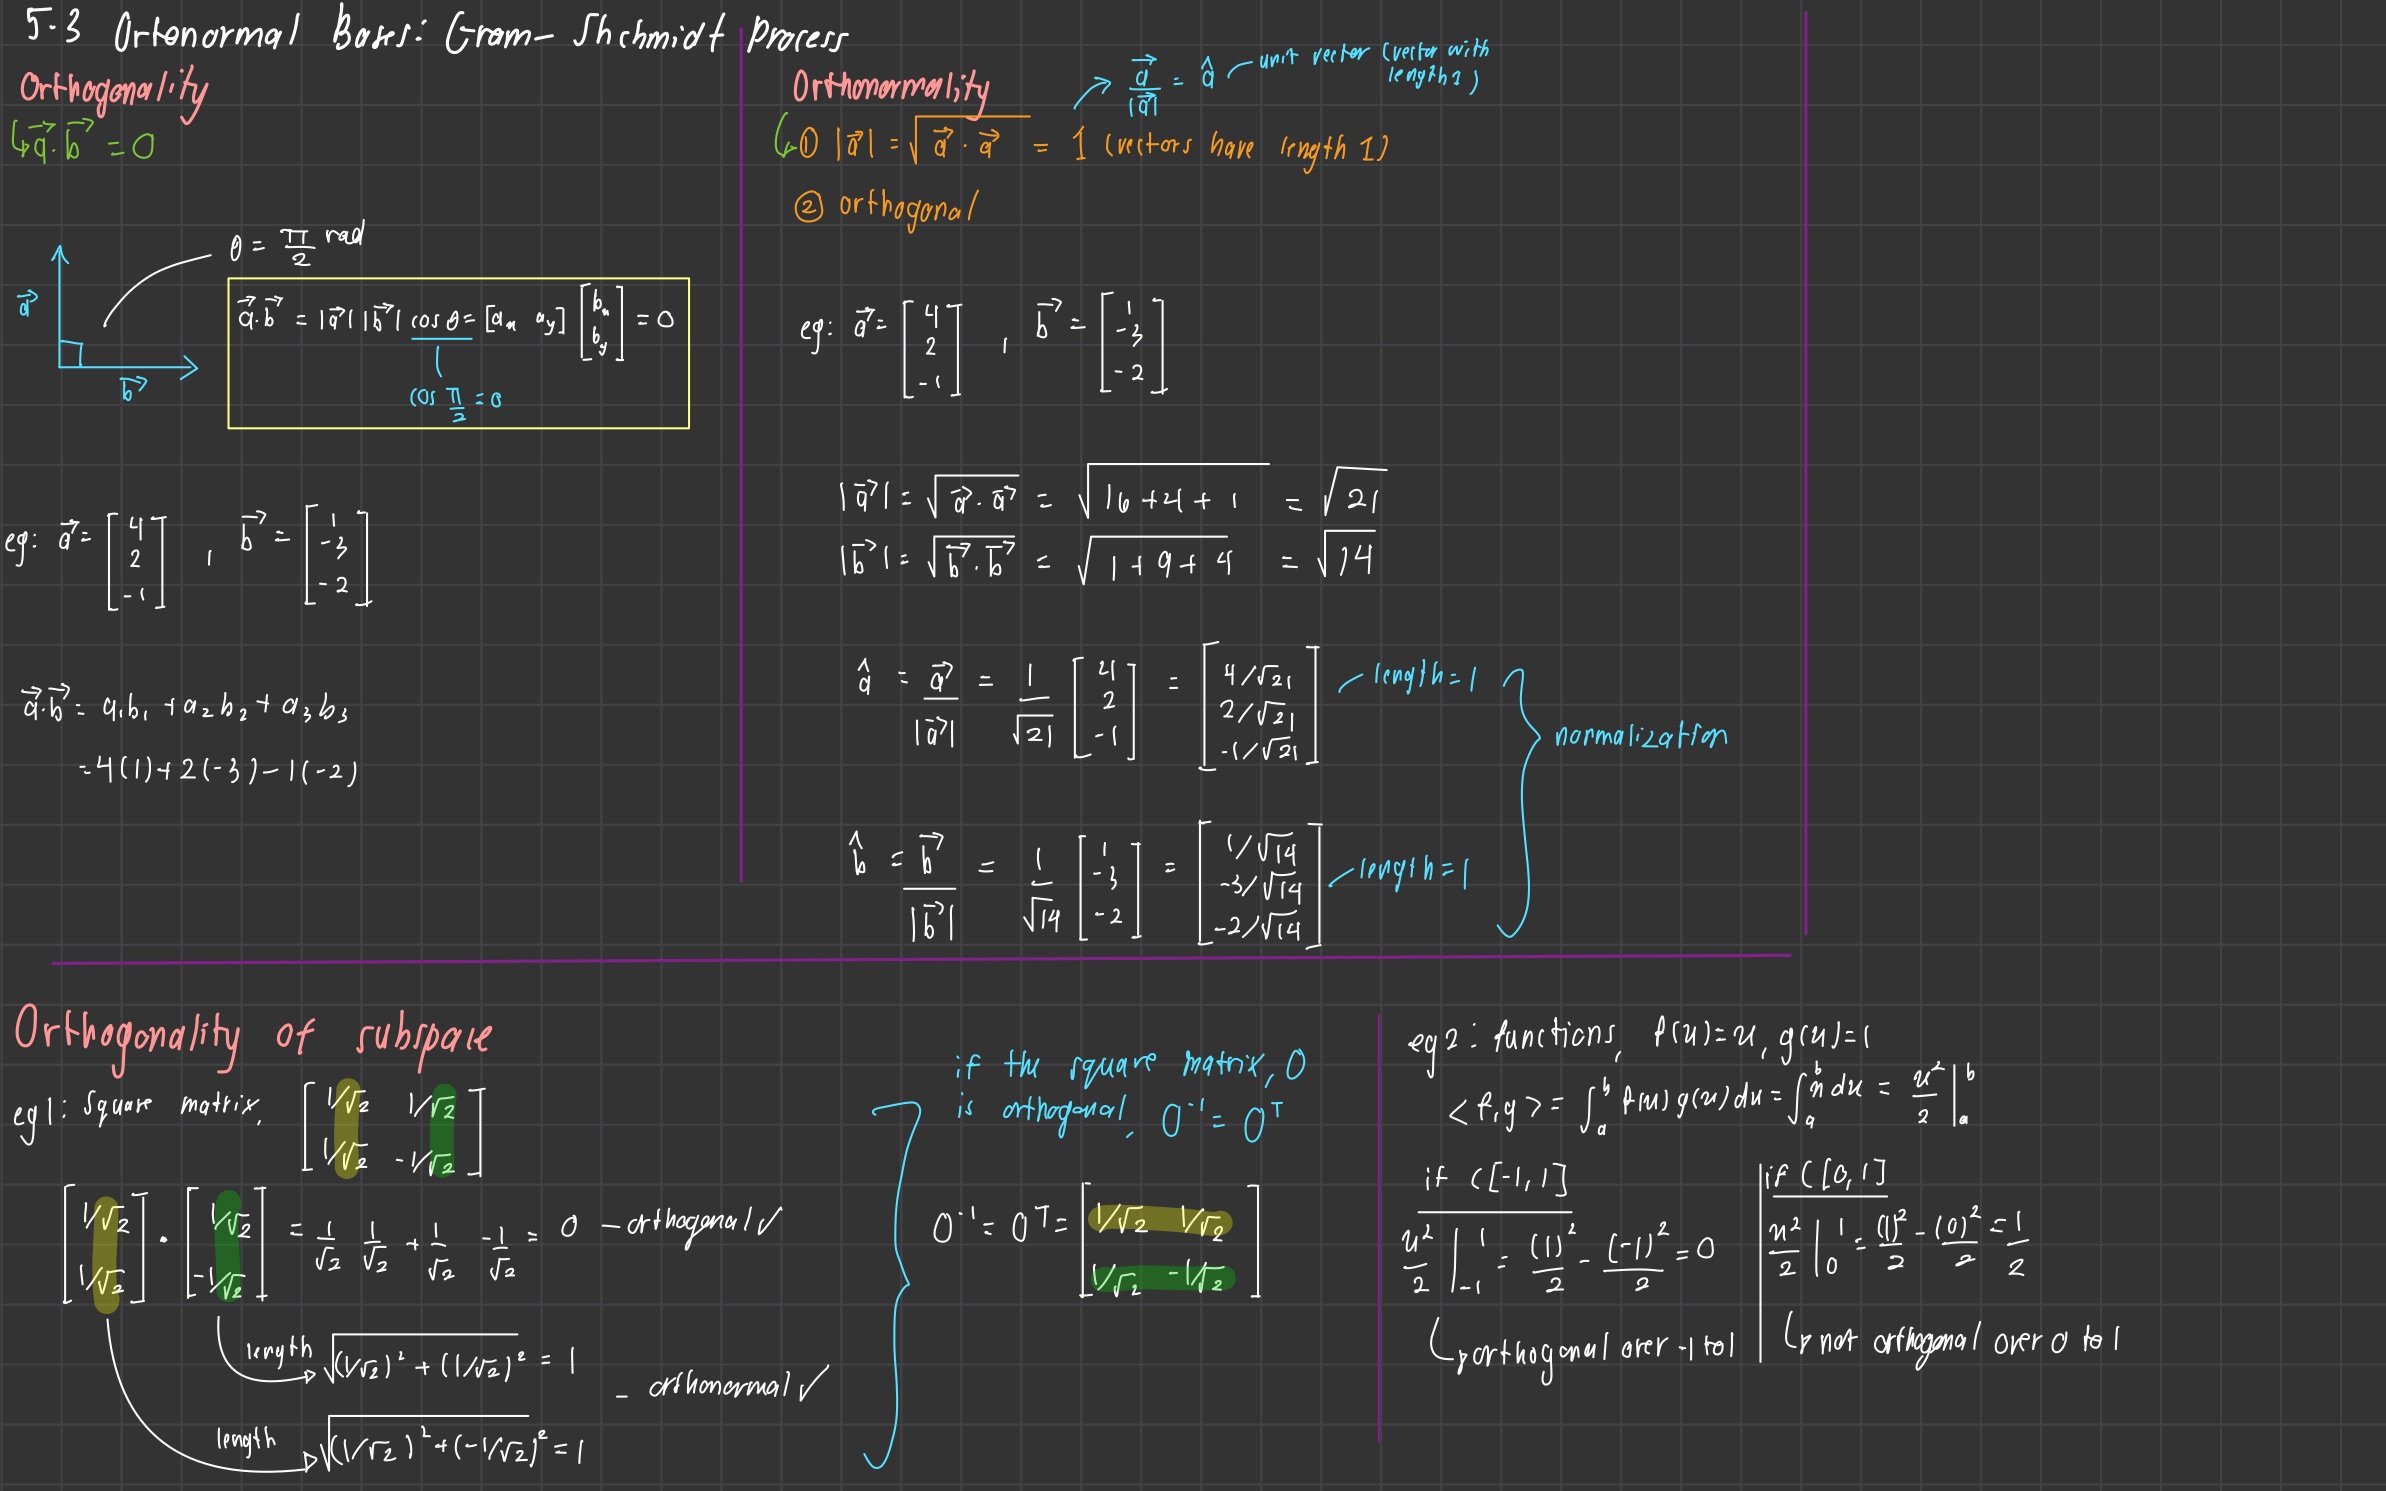 5.3 Ortonormal Bases: Gram-Shchmidt Process
Orthogonality
↳ a⃗·b⃗ = 0
θ = π/2 rad
a⃗
b⃗
a⃗·b⃗ = |a⃗| |b⃗| cos θ = [aₓ a_y] [bₓ b_y] = 0
cos π/2 = 0
eg: a⃗ = [4 2 -1] , b⃗ = [1 -3 -2]
a⃗·b⃗ = a₁b₁ + a₂b₂ + a₃b₃
= 4(1) + 2(-3) - 1(-2)
Orthonormality
a⃗/|a⃗| = â unit vector (vector with length 1)
↳ ① |a⃗| = √(a⃗·a⃗) = 1 (vectors have length 1)
② orthogonal
eg: a⃗ = [4 2 -1] , b⃗ = [1 -3 -2]
|a⃗| = √(a⃗·a⃗) = √(16+4+1) = √21
|b⃗| = √(b⃗·b⃗) = √(1+9+4) = √14
â = a⃗/|a⃗| = 1/√21 [4 2 -1] = [4/√21 2/√21 -1/√21] length = 1
normalization
b̂ = b⃗/|b⃗| = 1/√14 [1 -3 -2] = [1/√14 -3/√14 -2/√14] length = 1
Orthogonality of subspace
eg 1: Square matrix, [1/√2 1/√2 1/√2 -1/√2]
[1/√2 1/√2] · [1/√2 -1/√2] = 1/√2 1/√2 + 1/√2 -1/√2 = 0 - orthogonal ✓
length √((1/√2)² + (1/√2)²) = 1
- orthonormal ✓
length √((1/√2)² + (-1/√2)²) = 1
if the square matrix, O
is orthogonal, O⁻¹ = Oᵀ
O⁻¹ = Oᵀ = [1/√2 1/√2 1/√2 -1/√2]
eg 2: functions, f(x)=x, g(x)=1
<f,g> = ∫ₐᵇ f(x) g(x) dx = ∫ₐᵇ x dx = x²/2 |ₐᵇ
if C[-1,1]
x²/2 |₋₁¹ = (1)²/2 - (-1)²/2 = 0
↳ orthogonal over -1 to 1
if C[0,1]
x²/2 |₀¹ = (1)²/2 - (0)²/2 = 1/2
↳ not orthogonal over 0 to 1